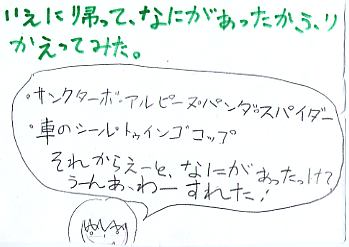 いえに帰って、なにがあったか、ふり
かえってみた。
・サンクターボ・アルピーヌ・パンダ・スパイダー
・車のシール・トゥインゴ コップ
それからえーと、なにがあったっけ?
うーんあ、わーすれた!